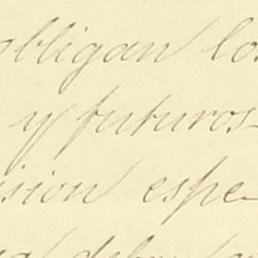 obligan los
y futuros
ision espe-